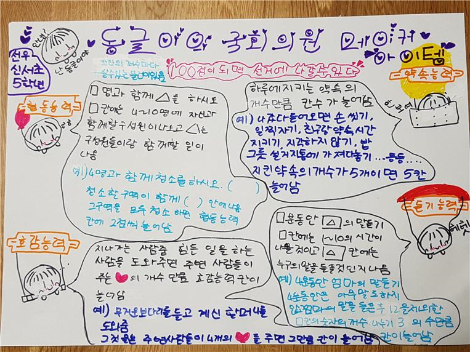 동글이의 국회의원 메이커
아이템
선우
신서초
5학년
안녕
난 동글이야
100점이 되면 선거에 나갈 수 있다
협동능력
□명과 함께 △을 하시오
□칸에는 4~10명에 자신과
함께할 구성원이 나오고 △는
구성원들이랑 함께할 일이
나옴
예) 4명과 함께 청소를 하시오. ( )
청소할 구역이 함께 ( ) 안에 나옴
그 구역을 모두 청소하면 협동능력
칸에 2점씩 늘어남
약속능력
하루에 지키는 약속의
개수만큼 칸수가 늘어남
예) 나갔다 들어오면 손 씻기,
일찍 자기, 친구랑 약속시간
지키기, 지각하지 않기, 밥
그릇 설거지통에 가져다놓기...등등....
지킨 약속의 개수가 5개이면 5칸
늘어남
호감능력
지나가는 사람 중 힘든 일을 하는
사람을 도와주면 주변 사람들이
주는 ♥의 개수만큼 호감능력 칸이
늘어남
예) 무거운 보따리를 들고 계신 할머니를
도와드림
그것을 본 주변 사람들이 4개의 ♥를 주면 그만큼 칸이 늘어남
듣기능력
□분동안 △의 말 듣기
□칸에는 1~10의 시간이
나올 것이고 △ 안에는
누구의 말을 들을 것인지 나옴
예) 4분동안 엄마의 말 듣기
4분동안은 아무 말도 하지